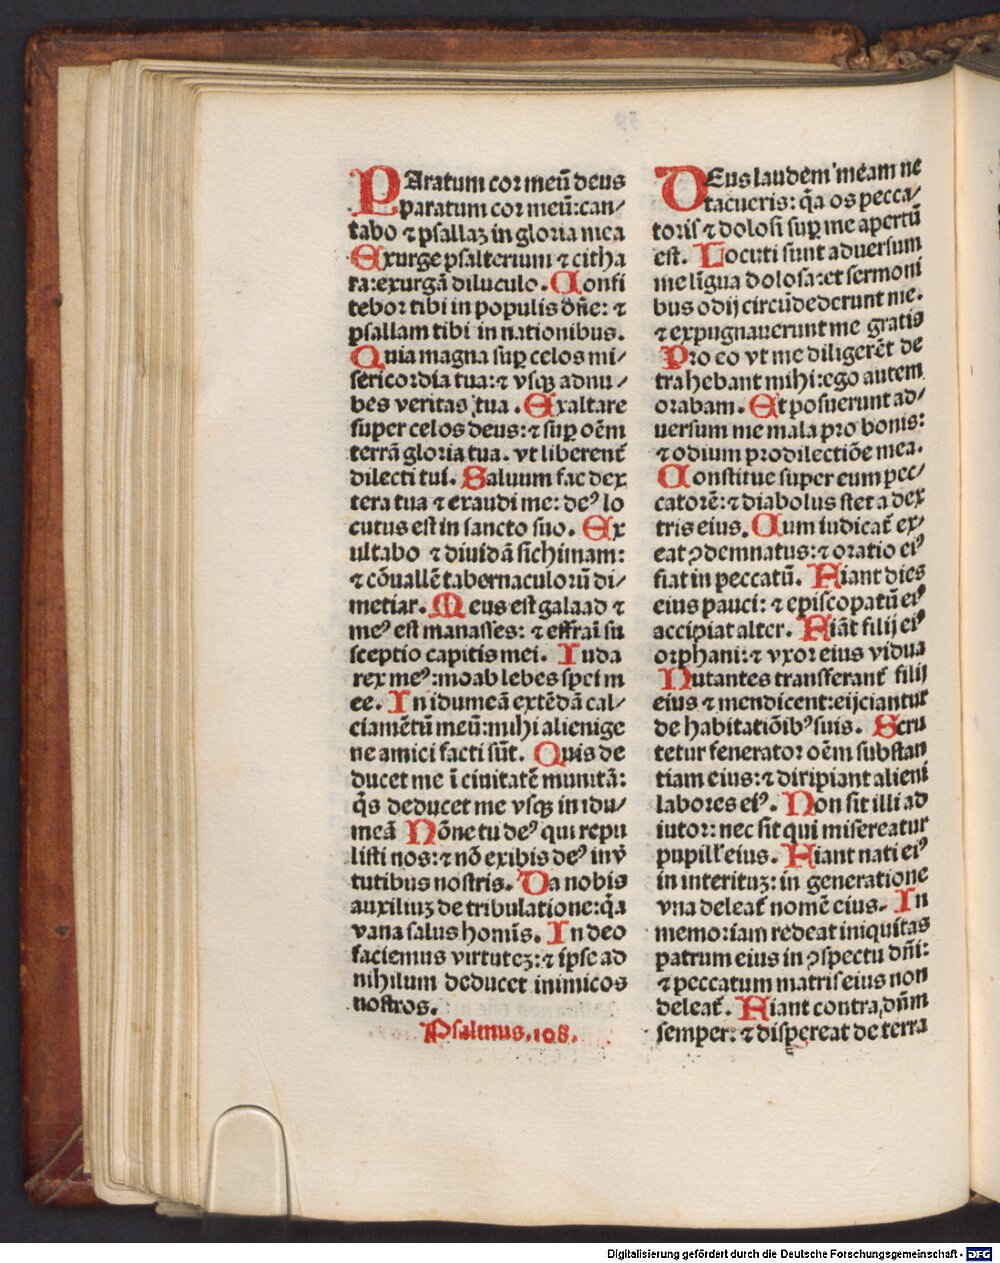 PAratum cor meū deus
paratum cor meū:can⸗
tabo ⁊ psallaꝫ in gloria mea
Exurge psalterium ⁊ citha
ra:exurgā diluculo. Confi
tebor tibi in populis dn̄e: ⁊
psallam tibi in nationibus.
Quia magna suꝑ celos mi⸗
sericordia tua:⁊ vsqꝫ ad nu⸗
bes veritas tua. Exaltare
super celos deus:⁊ suꝑ oēm
terrā gloria tua. vt liberent᷑
dilecti tui. Saluum fac dex
tera tua ⁊ exaudi me: deꝰ lo
cutus est in sancto suo. Ex
ultabo ⁊ diuidā sichimam:
⁊ cōuallē tabernaculorū di⸗
metiar. Meus est galaad ⁊
meꝰ est manasses: ⁊ effraī su
sceptio capitis mei. Iuda
rex meꝰ:moab lebes spei m
ee. In idumeā extēdā cal⸗
ciamētū meū:mihi alienige
ne amici facti sūt. Quis de
ducet me ī ciuitatē munitā:
q̄s deducet me vsqꝫ in idu⸗
meā Nōne tu deꝰ qui repu
listi nos:⁊ nō exibis deꝰ in v̄
tutibus nostris. Da nobis
auxiliuꝫ de tribulatione:q̄a
vana salus homīs. In deo
faciemus virtuteꝫ:⁊ ipse ad
nihilum deducet inimicos
nostros.
Psalmus.108.
DEus laudem meam ne
tacueris: q̄a os pecca⸗
toris ⁊ dolosi suꝑ me apertū
est. Locuti sunt aduersum
me līgua dolosa:et sermoni
bus odij circūdederunt me.
⁊ expugnauerunt me gratis
Pro eo vt me diligerēt de
trahebant mihi:ego autem
orabam. Et posuerunt ad⸗
uersum me mala pro bonis:
⁊ odium pro dilectiōe mea.
Constitue super eum pec⸗
catorē:⁊ diabolus stet a dex
tris eius. Cum iudicat᷑ ex⸗
eat ꝯdemnatus:⁊ oratio eiꝰ
fiat in peccatū. Fiant dies
eius pauci: ⁊ episcopatū eiꝰ
accipiat alter. Fiāt filij eiꝰ
orphani:⁊ vxor eius vidua
Nutantes transferant᷑ filij
eius ⁊ mendicent:eijciantur
de habitatiōibꝰ suis. Scru
tetur fenerator oēm substan
tiam eius:⁊ diripiant alieni
labores eiꝰ. Non sit illi ad
iutor: nec sit qui misereatur
pupill' eius. Fiant nati eiꝰ
in interituꝫ: in generatione
vna deleat᷑ nomē eius. In
memoriam redeat iniquitas
patrum eius in ꝯspectu dn̄i:
⁊ peccatum matris eius non
deleat᷑. Fiant contra dn̄m
semper: ⁊ dispereat de terra
Digitalisierung gefördert durch die Deutsche Forschungsgemeinschaft - DFG